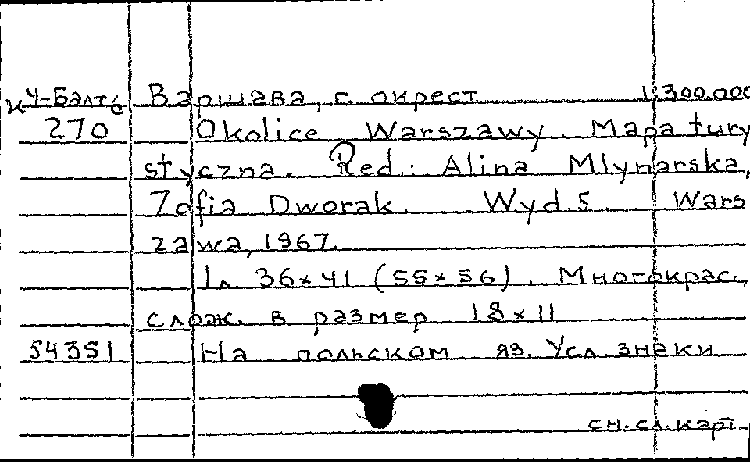 К У-Балт/с Варшава, г. окрест 1:300.000
270 Okolice Warszawy. Mapa tury
styczna. Red. Alina Mlynarska,
Zofia Dworak. Wyd.5. Wars
zawa, 1967.
1л. 36×41 (55×56). Многокрас.,
слож. в размер 18×11
54351 На польском яз. Усл. знаки
см. сл. карт.